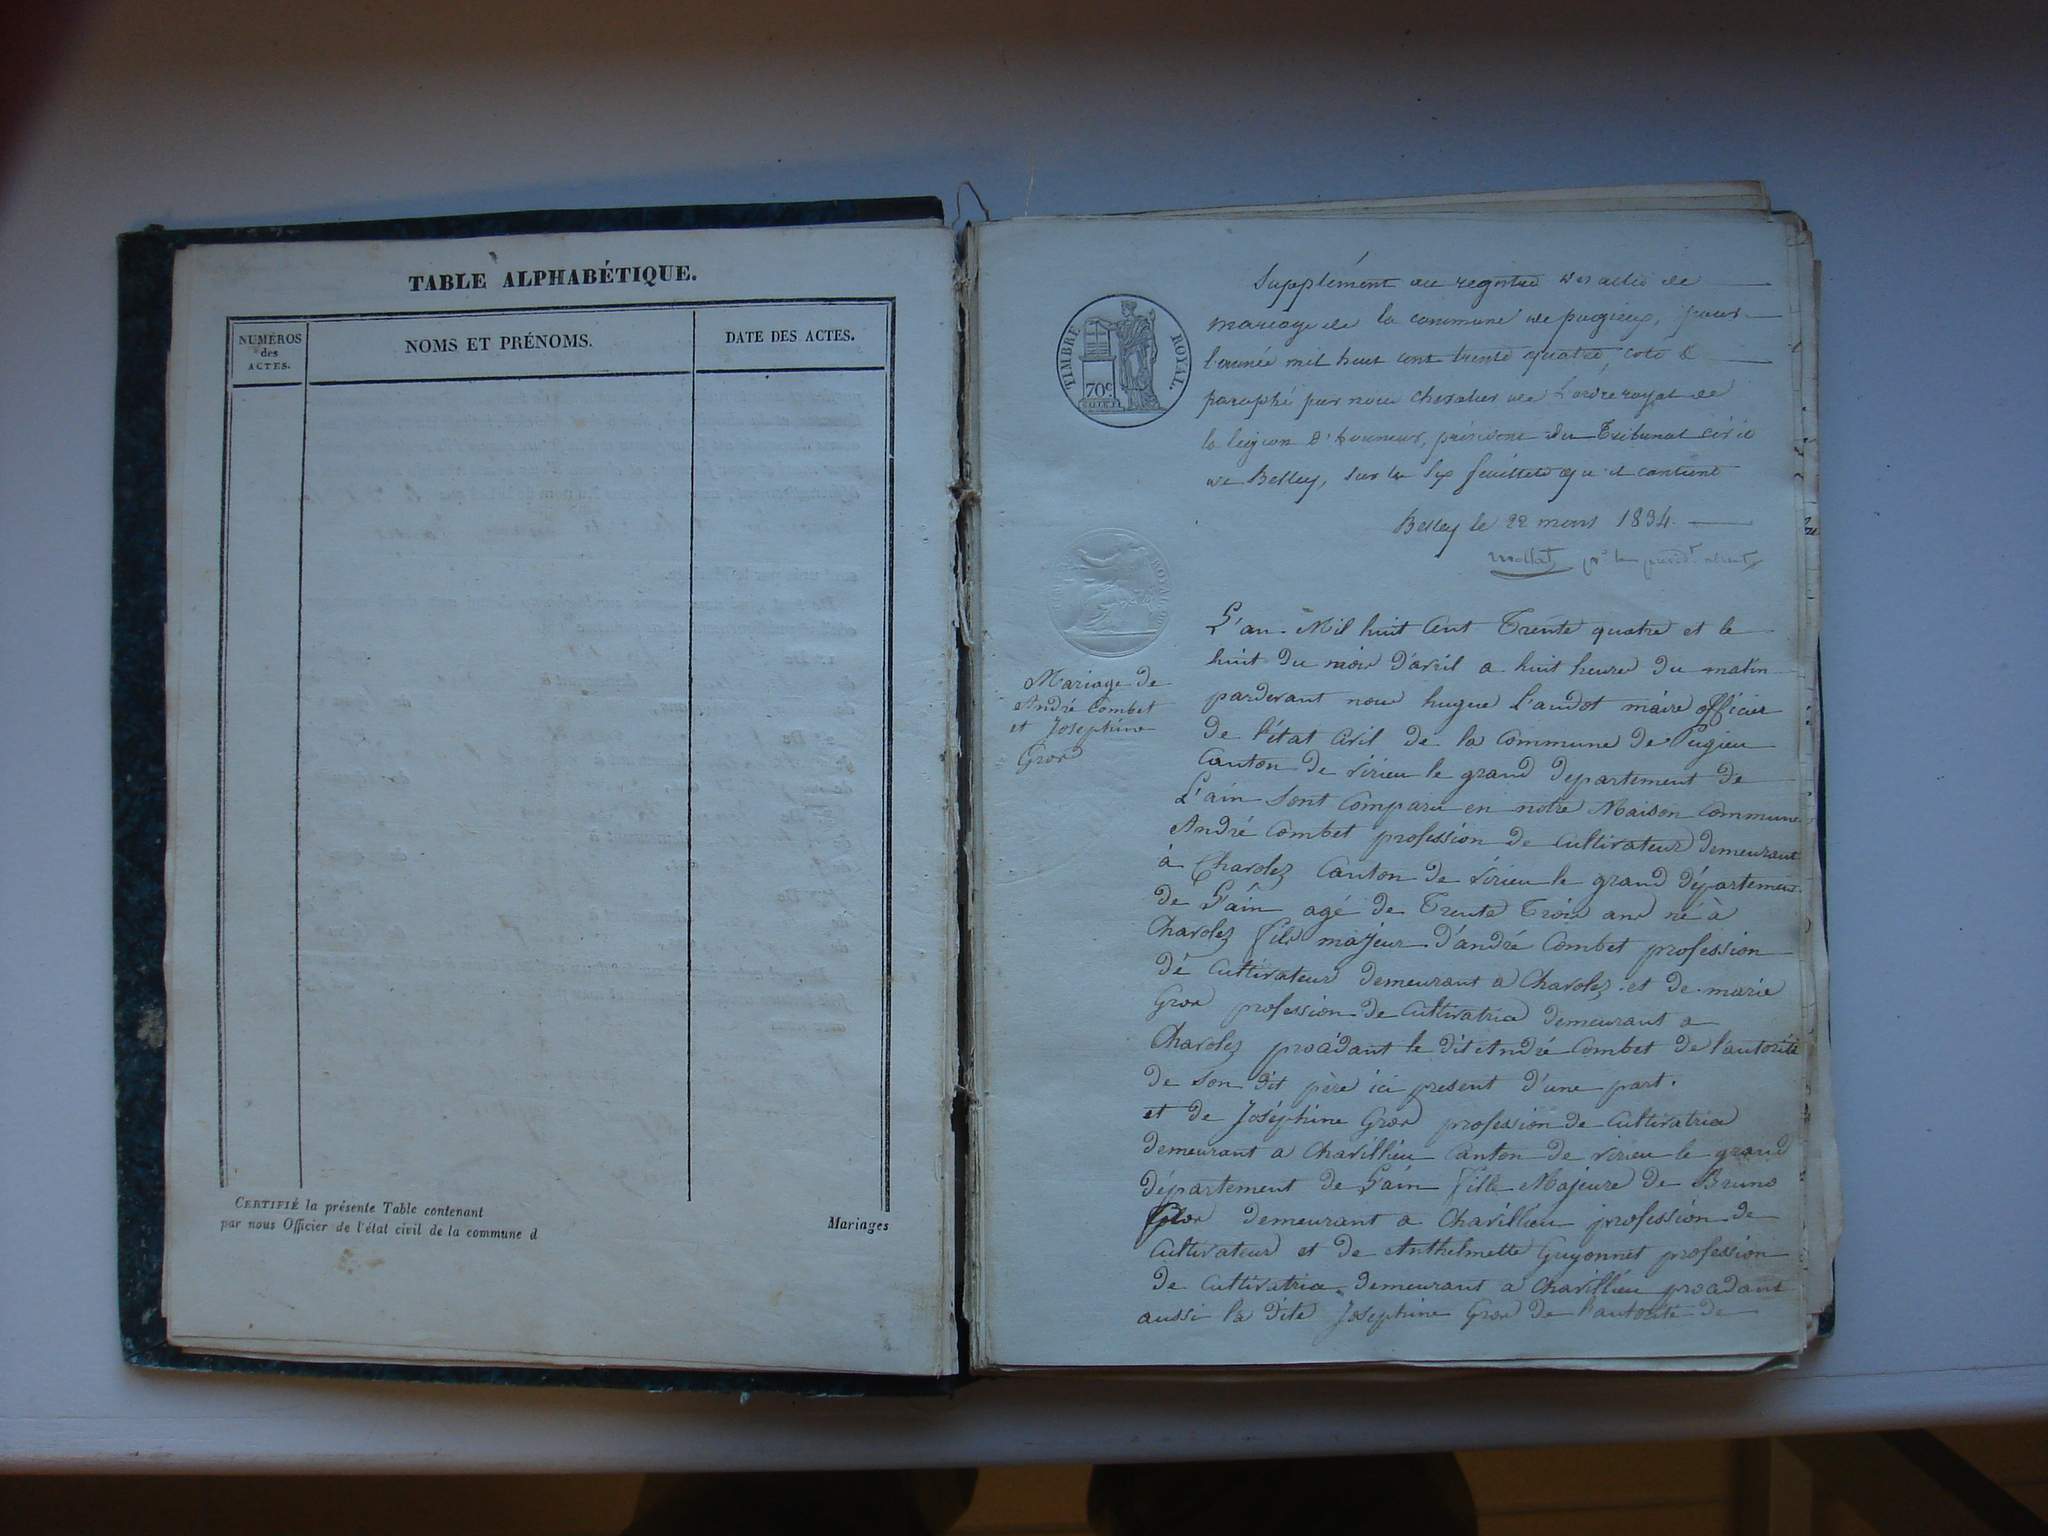 TABLE ALPHABÉTIQUE.
NUMÉROS
des
ACTES.
NOMS ET PRÉNOMS.
DATE DES ACTES.
CERTIFIÉ la présente Table contenant
par nous Officier de l'état civil de la commune d
Mariages
TIMBRE ROYAL.
70c.
Supplément au registre des actes de
mariage de la commune de pugieux, pour
l'année mil huit cent trente quatre coté &
paraphé par nous chevalier de l'ordre royal de
la légion d'honneur, président du Tribunal civil
de Belley, sur les six feuillets qu'il contient
Belley le 22 mars 1834.
mollat pr le présidt absent
Mariage de
André Combet
et Josephine
Gros
L'an Mil huit Cent Trente quatre et le
huit du mois d'avril a huit heures du matin
pardevant nous hugue L'audot maire officier
de l'état Civil de la Commune de Pugieu
Canton de virieu le grand departement de
L'ain Sont Comparu en notre Maison Commune
André Combet profession de Cultivateur demeurant
à Charolez Canton de virieu le grand département
de L'ain agé de Trente Trois ans né à
Charolez fils majeur d'andré Combet profession
de Cultivateur demeurant a Charolez et de marie
Gros profession de Cultivatrice demeurant a
Charolez procédant le dit André Combet de l'autorité
de Son dit père ici present d'une part.
et de Joséphine Gros profession de Cultivatrice
demeurant a Chavillieu Canton de virieu le grand
département de L'ain fille Majeure de Bruno
Gros demeurant a Chavillieu profession de
Cultivateur et de Anthelmette Guyonnet profession
de Cultivatrice demeurant a Chavillieu procédant
aussi la dite Josephine Gros de l'autorité de